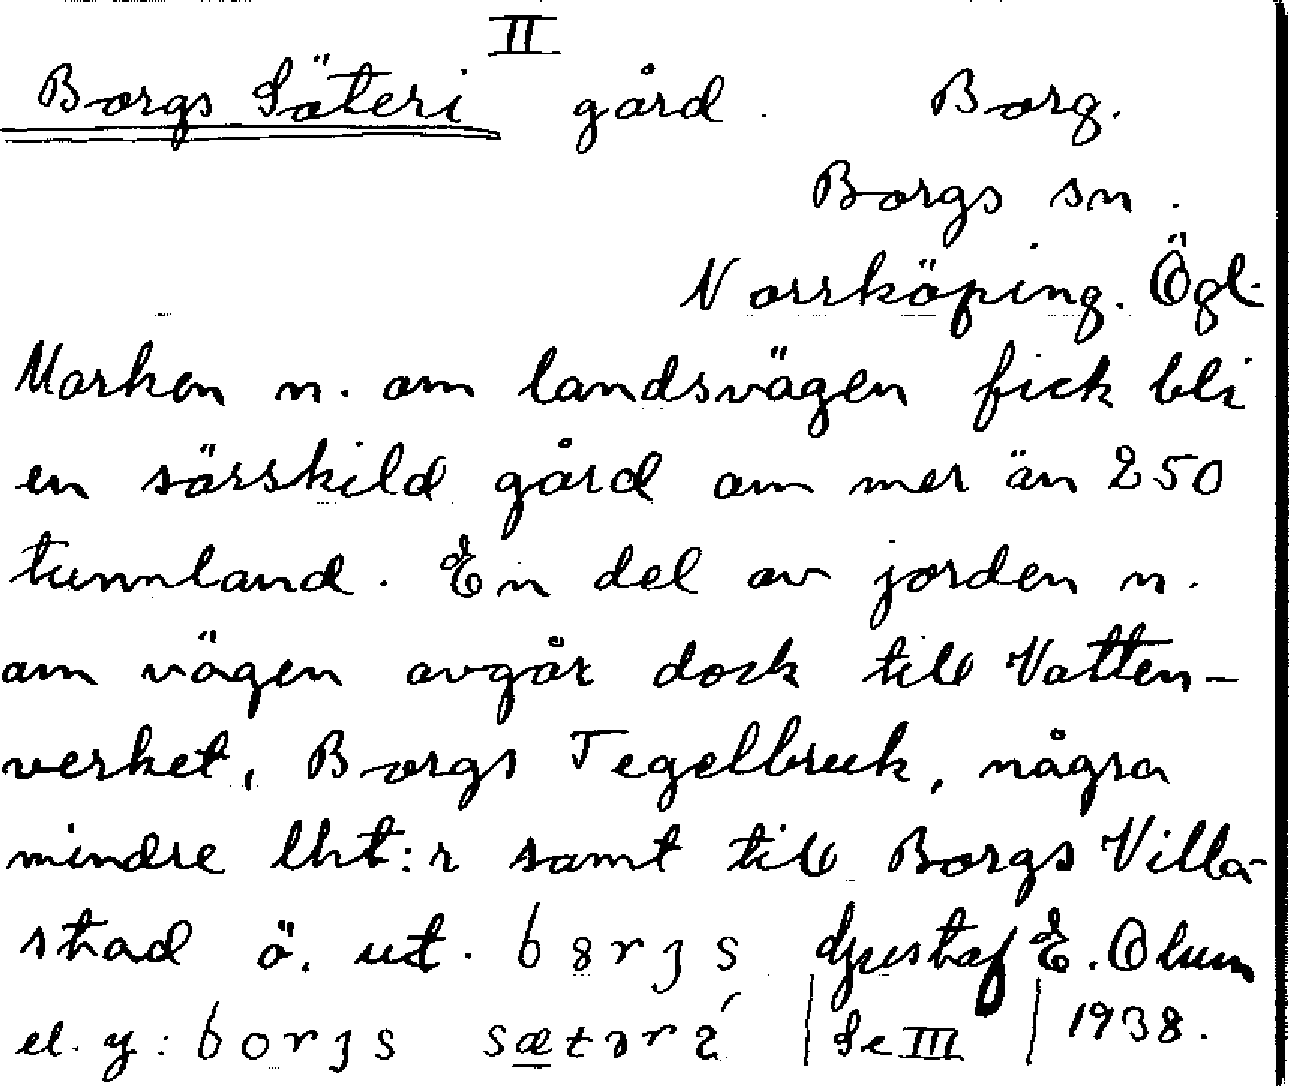 II
Borgs Säteri gård. Borg.
Borgs sn.
Norrköping. Ögl.
Marken n. om landsvägen fick bli
en särskild gård om mer än 250
tunnland. En del av jorden n.
om vägen avgår dock till Vatten-
verket, Borgs Tegelbruk, några
mindre lht:r samt till Borgs Villa-
stad ö. ut. Gustaf E. Olum
el. y: borjs Se III 1938.